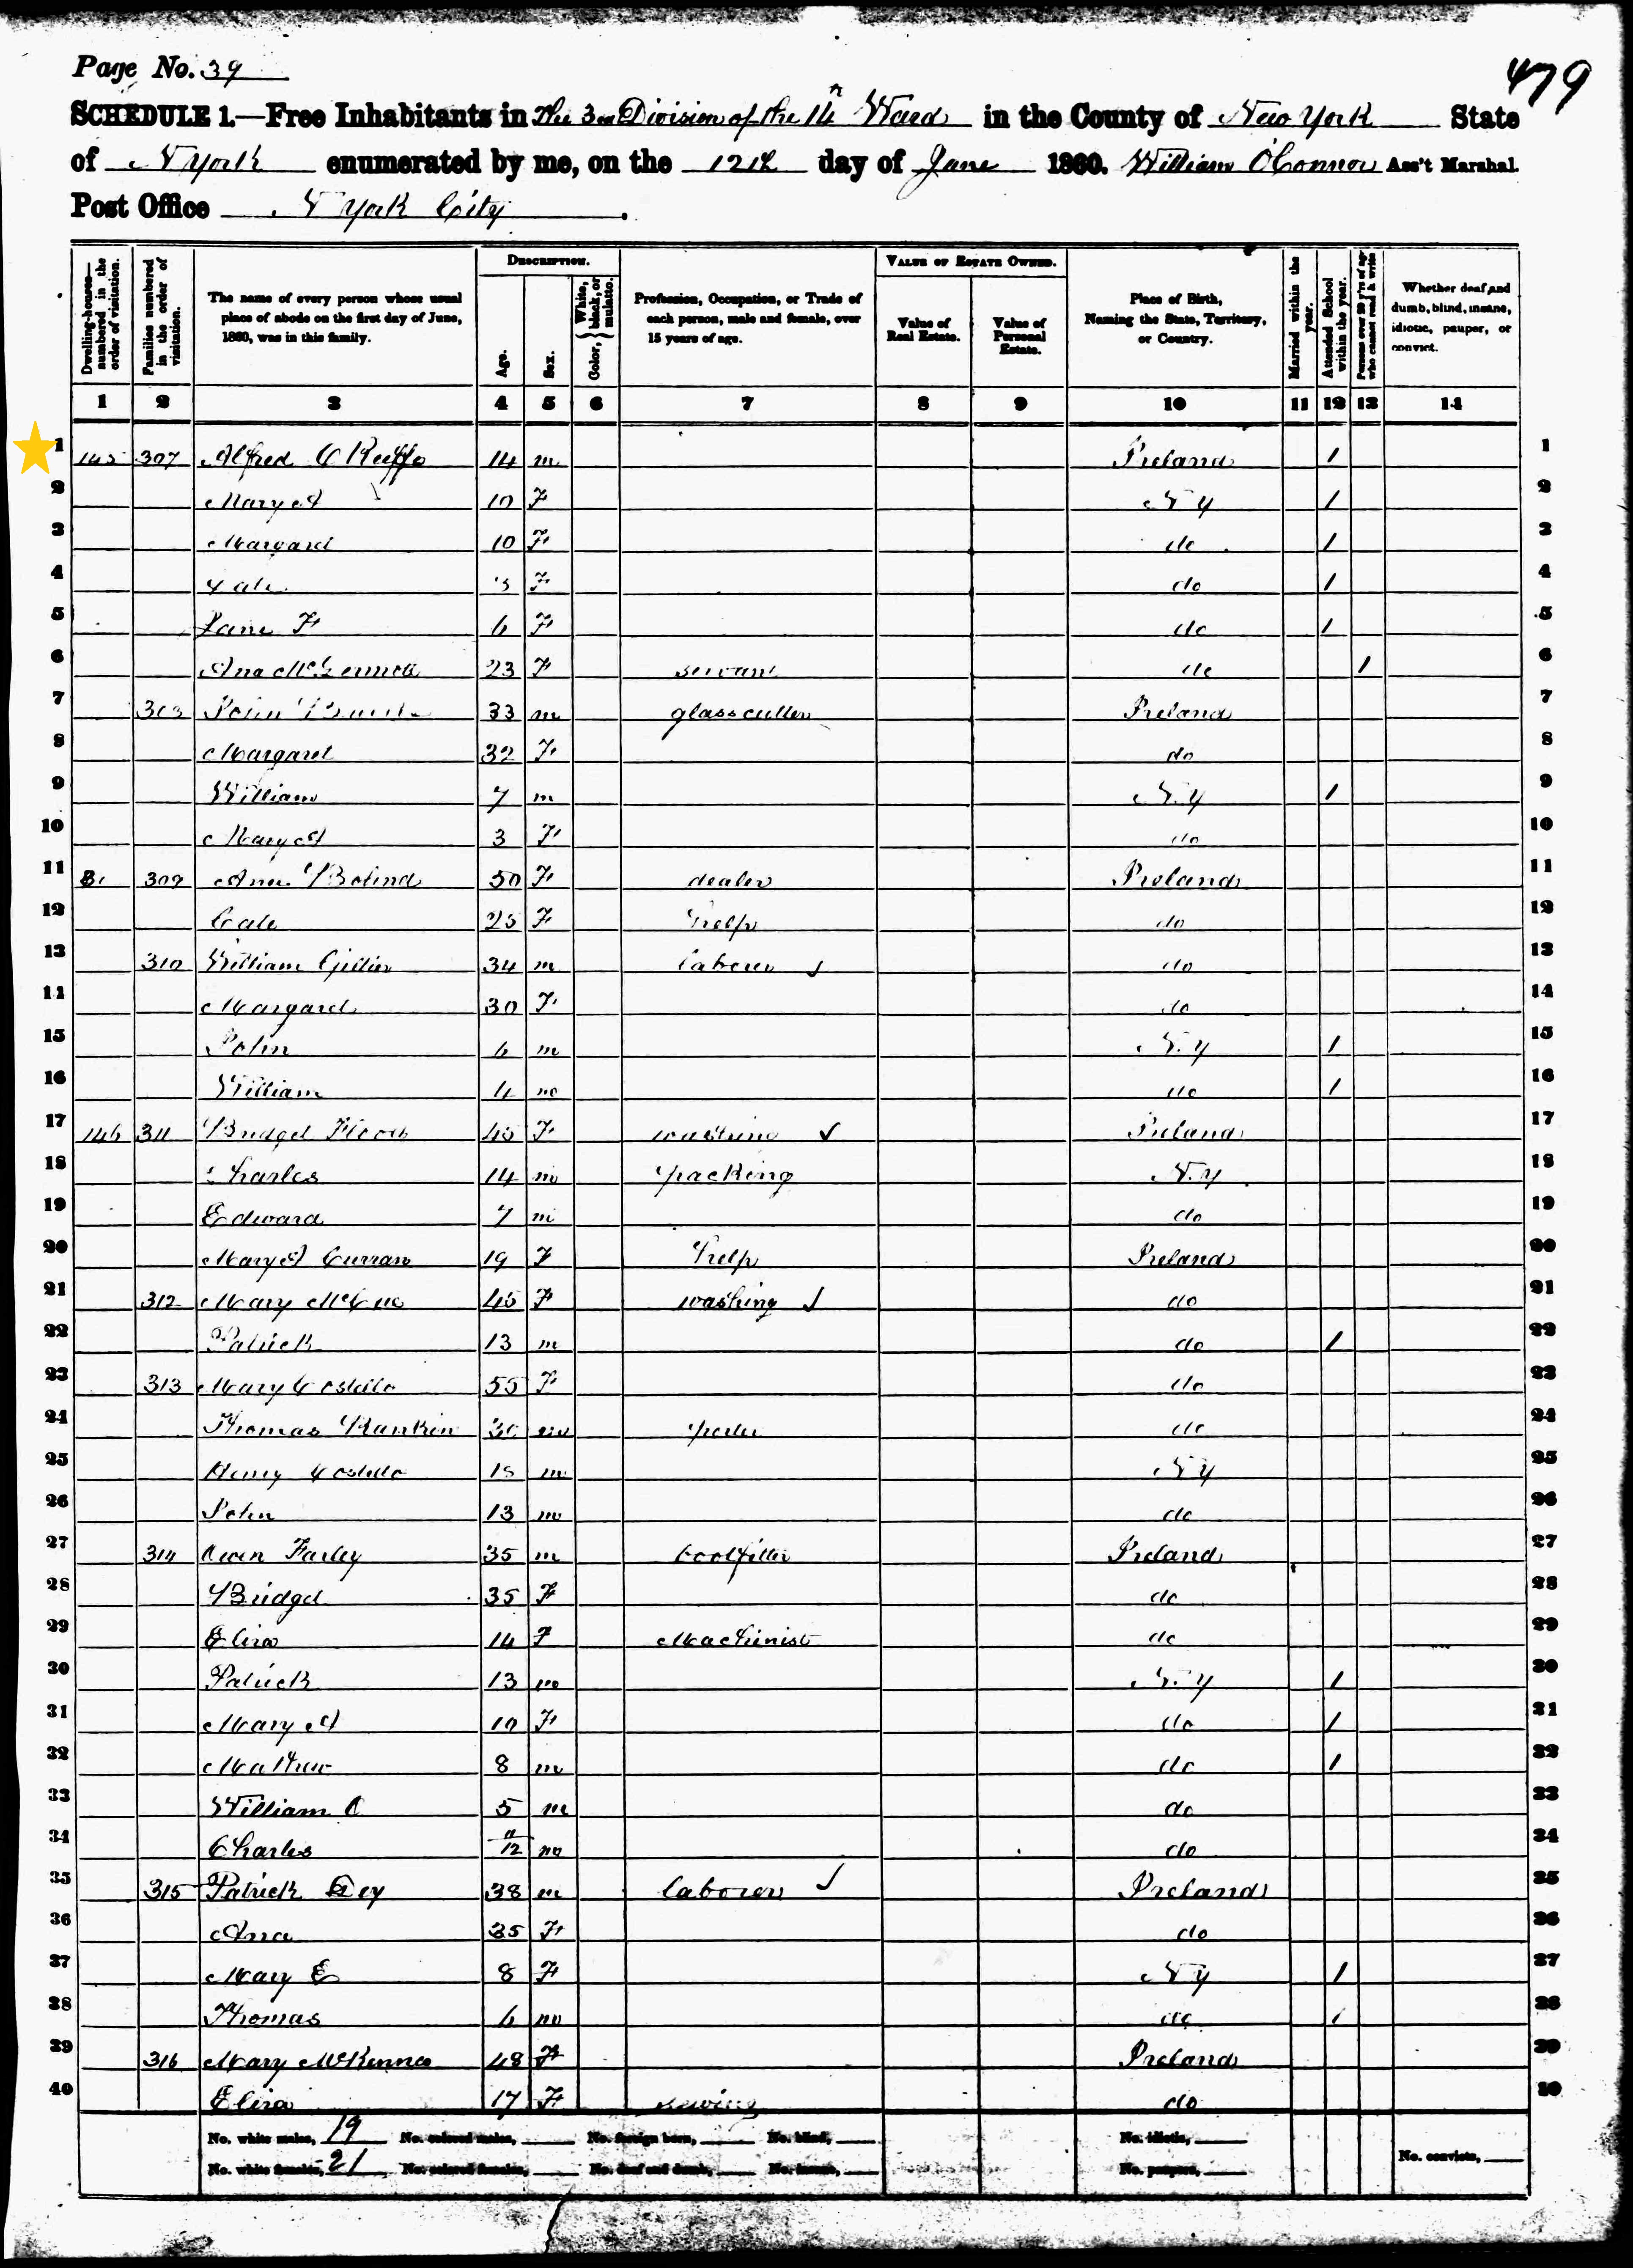 Page No. 39
479
SCHEDULE 1.—Free Inhabitants in the 3rd Division of the 14th Ward in the County of New York State
of N York enumerated by me, on the 12th day of June 1860. William O'Connor Ass't Marshal.
Post Office N York City.
Dwelling-houses—numbered in the order of visitation.
Families numbered in the order of visitation.
The name of every person whose usual place of abode on the first day of June, 1860, was in this family.
DESCRIPTION.
Age.
Sex.
Color, { White, black, or mulatto.
Profession, Occupation, or Trade of each person, male and female, over 15 years of age.
VALUE OF ESTATE OWNED.
Value of Real Estate.
Value of Personal Estate.
Place of Birth, Naming the State, Territory, or Country.
Married within the year.
Attended School within the year.
Persons over 20 y'rs of age who cannot read & write
Whether deaf and dumb, blind, insane, idiotic, pauper, or convict.
1 2 3 4 5 6 7 8 9 10 11 12 13 14
1 145 307 Alfred O Keiffe 14 m Ireland 1 1
2 Mary A 10 F N Y 1 2
3 Margaret 10 F do 1 3
4 F do 1 4
5 Jane F 6 F do 1 5
6 Ana 23 F servant do 1 6
7 308 John 33 m glass cutter Ireland 7
8 Margaret 32 F do 8
9 William 7 m N.Y 1 9
10 Mary A 3 F do 10
11 309 Ann 50 F dealer Ireland 11
12 Cate 25 F help do 12
13 310 William 34 m laborer ✓ do 13
14 Margaret 30 F do 14
15 John 6 m N.Y 1 15
16 William 4 m do 1 16
17 146 311 Bridget Flood 45 F washing ✓ Ireland 17
18 Charles 14 m packing N.Y 18
19 Edward 7 m do 19
20 Mary A Curran 19 F help Ireland 20
21 312 Mary McCue 45 F washing ✓ do 21
22 Patrick 13 m do 1 22
23 313 Mary Costello 55 F do 23
24 Thomas Rankin 30 m porter do 24
25 Henry Costello 18 m N Y 25
26 John 13 m do 26
27 314 Owen Farley 35 m bootfitter Ireland 27
28 Bridget 35 F do 28
29 Eliza 14 F Machinist do 29
30 Patrick 13 m N.Y 1 30
31 Mary A 10 F do 1 31
32 Mathew 8 m do 1 32
33 William O 5 m do 33
34 Charles 11/12 m do 34
35 315 Patrick 38 m laborer ✓ Ireland 35
36 Ana 35 F do 36
37 Mary E 8 F N Y 1 37
38 Thomas 6 m do 1 38
39 316 Mary McKenna 48 F Ireland 39
40 Eliza 17 F sewing do 40
No. white males, 19 No. colored males, No. foreign born, No. blind, No. idiotic,
No. white females, 21 No. colored females, No. deaf and dumb, No. insane, No. paupers, No. convicts,